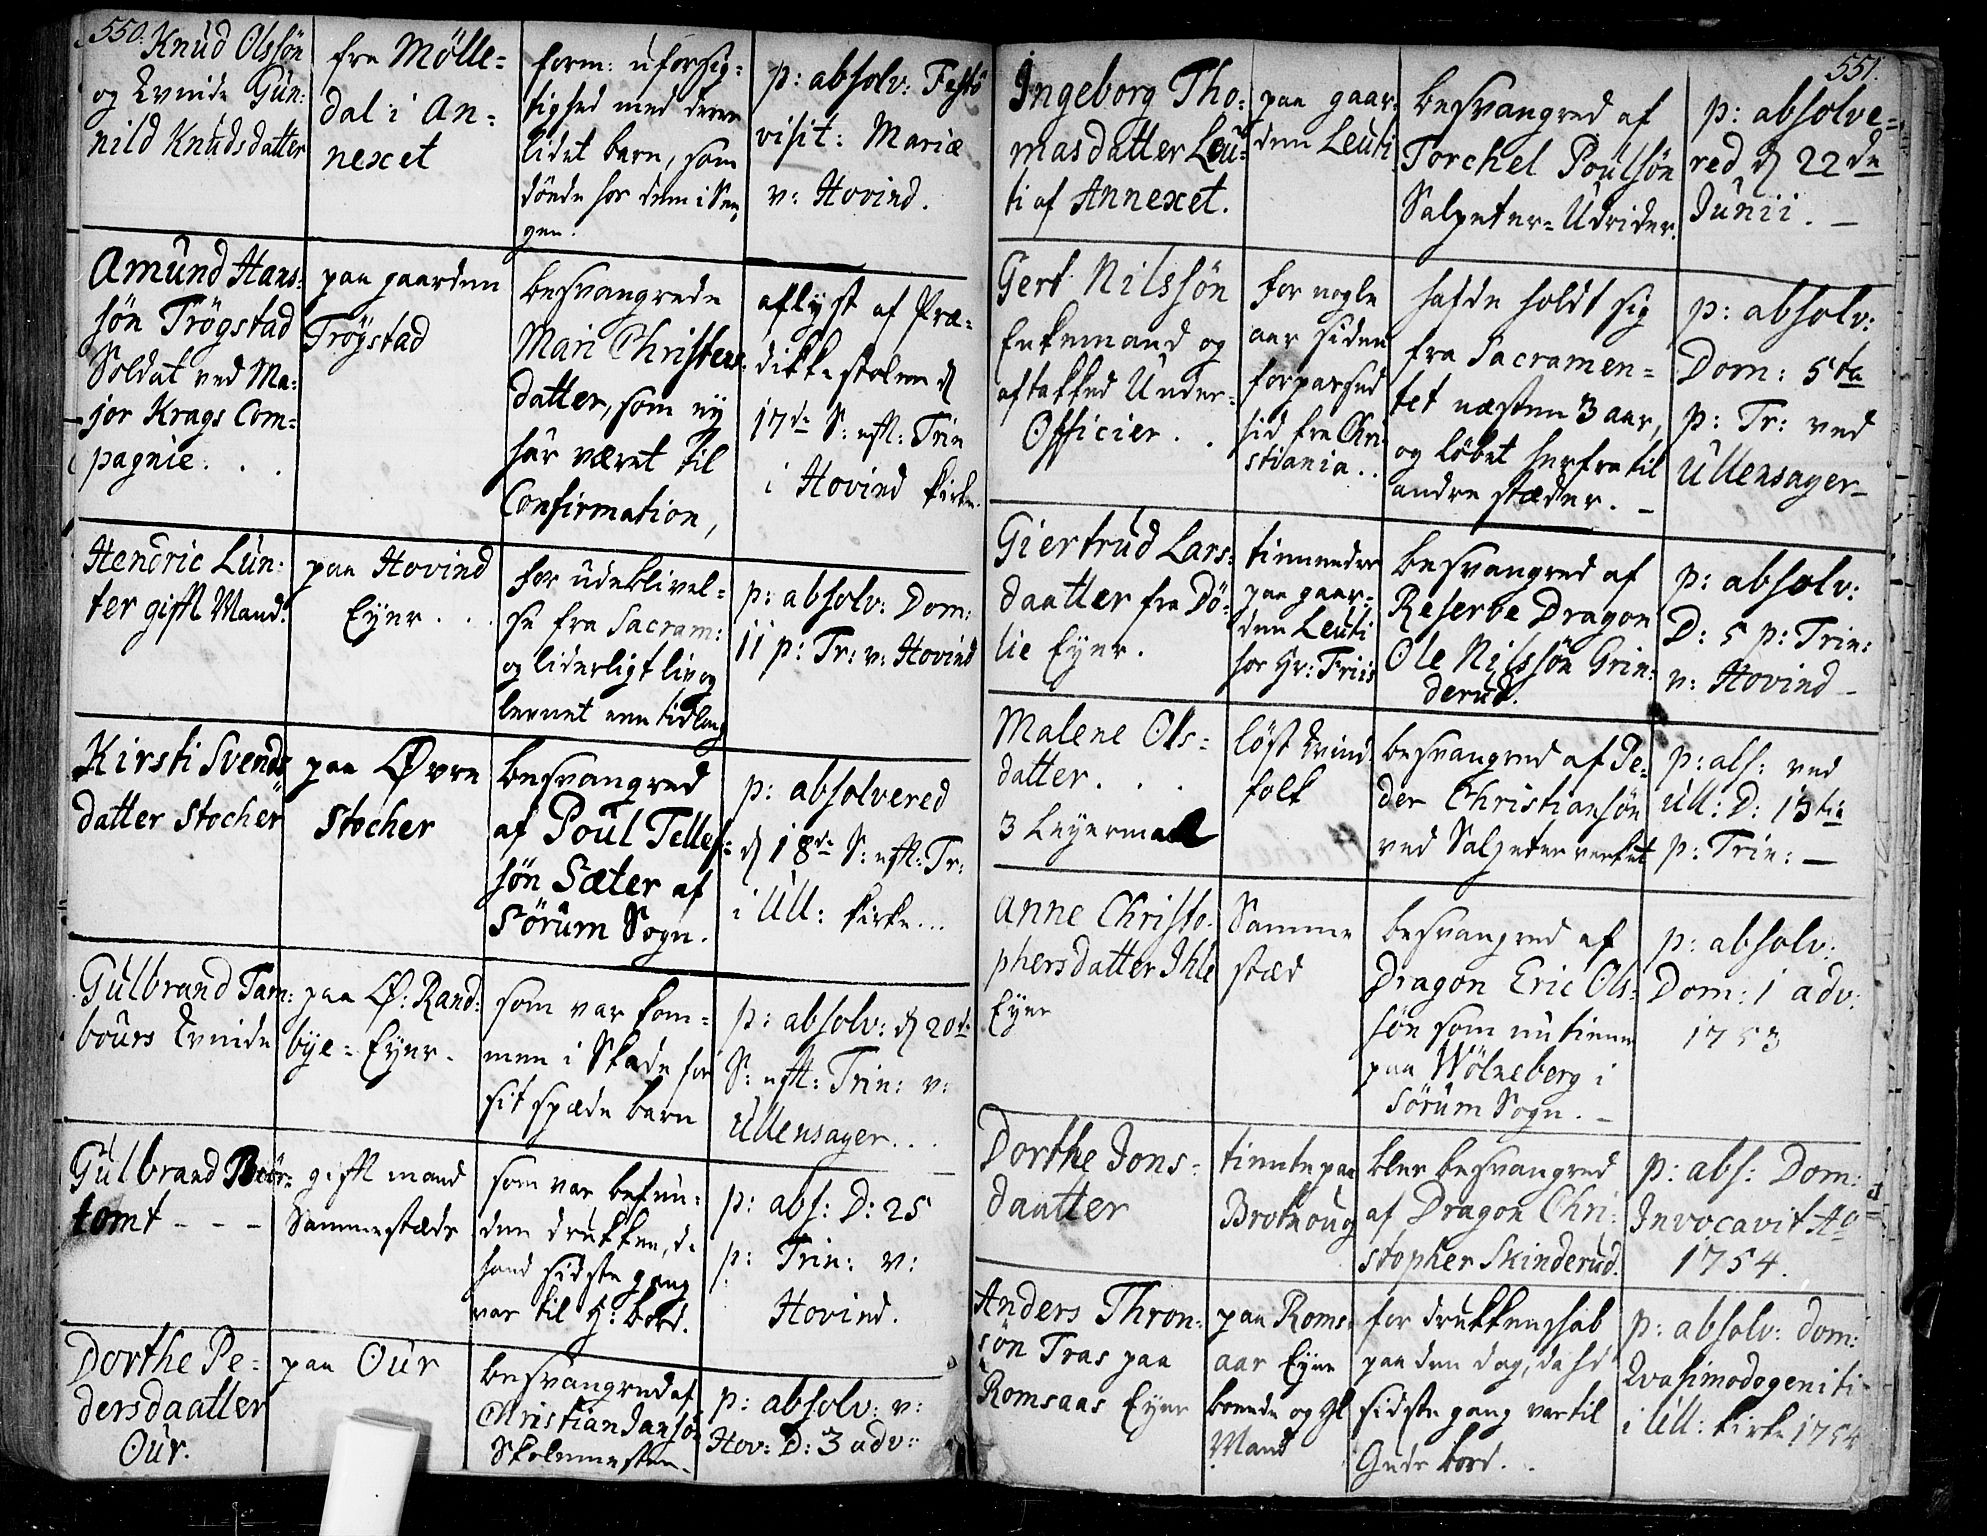 550.
Knud Olssön
og Qvinde Gun:
nild Knudsdatter
fra Mölle=
dal i An=
nexet
form: uforsig=
tighed med deres
lidet barn, som
döede hos dem i Sen,
gen.
p: absolv: Festo
visit: Mariæ
v: Hovind.
Amund Hans=
sön Trögstad
Soldat ved Ma=
jor Krags Com=
pagnie. . .
paa gaarden
Trögstad
besvangrede
Mari Christens
datter, som ny
har været til
Confirmation,
aflyst af Præ=
dikkestolen d
17de S: efft: Trin
i Hovind kirke.
Hendric Lun:
ter gifft Mand.
paa Hovind
Eyer . . .
for udeblivel=
se fra Sacram:
og liderligt liv og
levnet een tidlang
p: absolv: Dom:
11 p: Tr: v: Hovind
Kirsti Svends
datter Stocher
paa Øvre
Stocher
besvangred
af Poul Tellef=
sön Sæter af
Sörum Sogn.
p: absolvered
d 18de S: efft: Tr:
i Ull: kirke...
Gulbrand Tam:
bours Qvinde
paa Ø: Rand:
bye = Eyer.
som var kom=
men i Skade for
sit spæde barn
p: absolv: d 20de
S: efft: Trin: v:
Ullensager. . .
Gulbrand
tomt - - -
gifft mand
Sammestæds
som var befun:
den drukken, da
hand sidste gang
var til H: bord.
p: abs: D: 25
p: Trin: v:
Hovind.
Dorthe Pe=
dersdaatter
Our.
paa Our
besvangred af
Christian Jansön
Skolemester.
p: absolv: v:
Hov: D: 3 adv:
551.
Ingeborg Tho:
masdatter Leu=
ti af Annexet.
paa gaar=
den Leuti
besvangred af
Torchel Poulsön
Salpeter=Udrider.
p: absolve=
red d 22de
Junii. -
Gert Nilssön
Enkemand og
aftakked Under=
Officier . .
for nogle
aar siden
forparsed
hid fra Chri
stiania. .
hafde holdt sig
fra Sacramen=
tet næsten 3 aar,
og löbet herfra til
andre stæder. -
p: absolv:
Dom: 5ta
p: Tr: ved
Ullensager-
Giertrud Lars=
daatter fra Dö=
lie Eyer.
tienende
paa gaar=
den Leuti
hos Hr: Friis
besvangred af
Reserve Dragon
Ole Nilssön Grin=
derud.
p: absolv:
D: 5 p: Trin:
v: Hovind -
Malene Ols=
datter. . .
3 Leyermaal
löst Qvind
folk
besvangred af Pe=
der Christiansön
ved Salpeterverket
p: abs: ved
Ull: D: 13tia
p: Trin: -
Anne Christo=
phersdatter Ihle
Eyer
Samme
stæd
besvangred af
Dragon Eric Ols=
sön som nu tiener
paa Wölneberg i
Sörum Sogn. -
p: absolv:
Dom: 1 adv:
1753
Dorthe Jons=
daatter
tiente paa
Brotnoug
blev besvangred
af Dragon Chri:
stopher Skinderud.
p: abs: Dom:
Invocavit Ao
1754.
Anders Thron=
sön Tras paa
Romsaas Eyer
paa Roms=
aas Eyer
boende og gl
Mand
for drukkenskab
paa den dag, da hd
sidste gang var til
Guds bord. .
p: absolv: dom:
Qvasimodogeniti
i Ull: kirke 1754